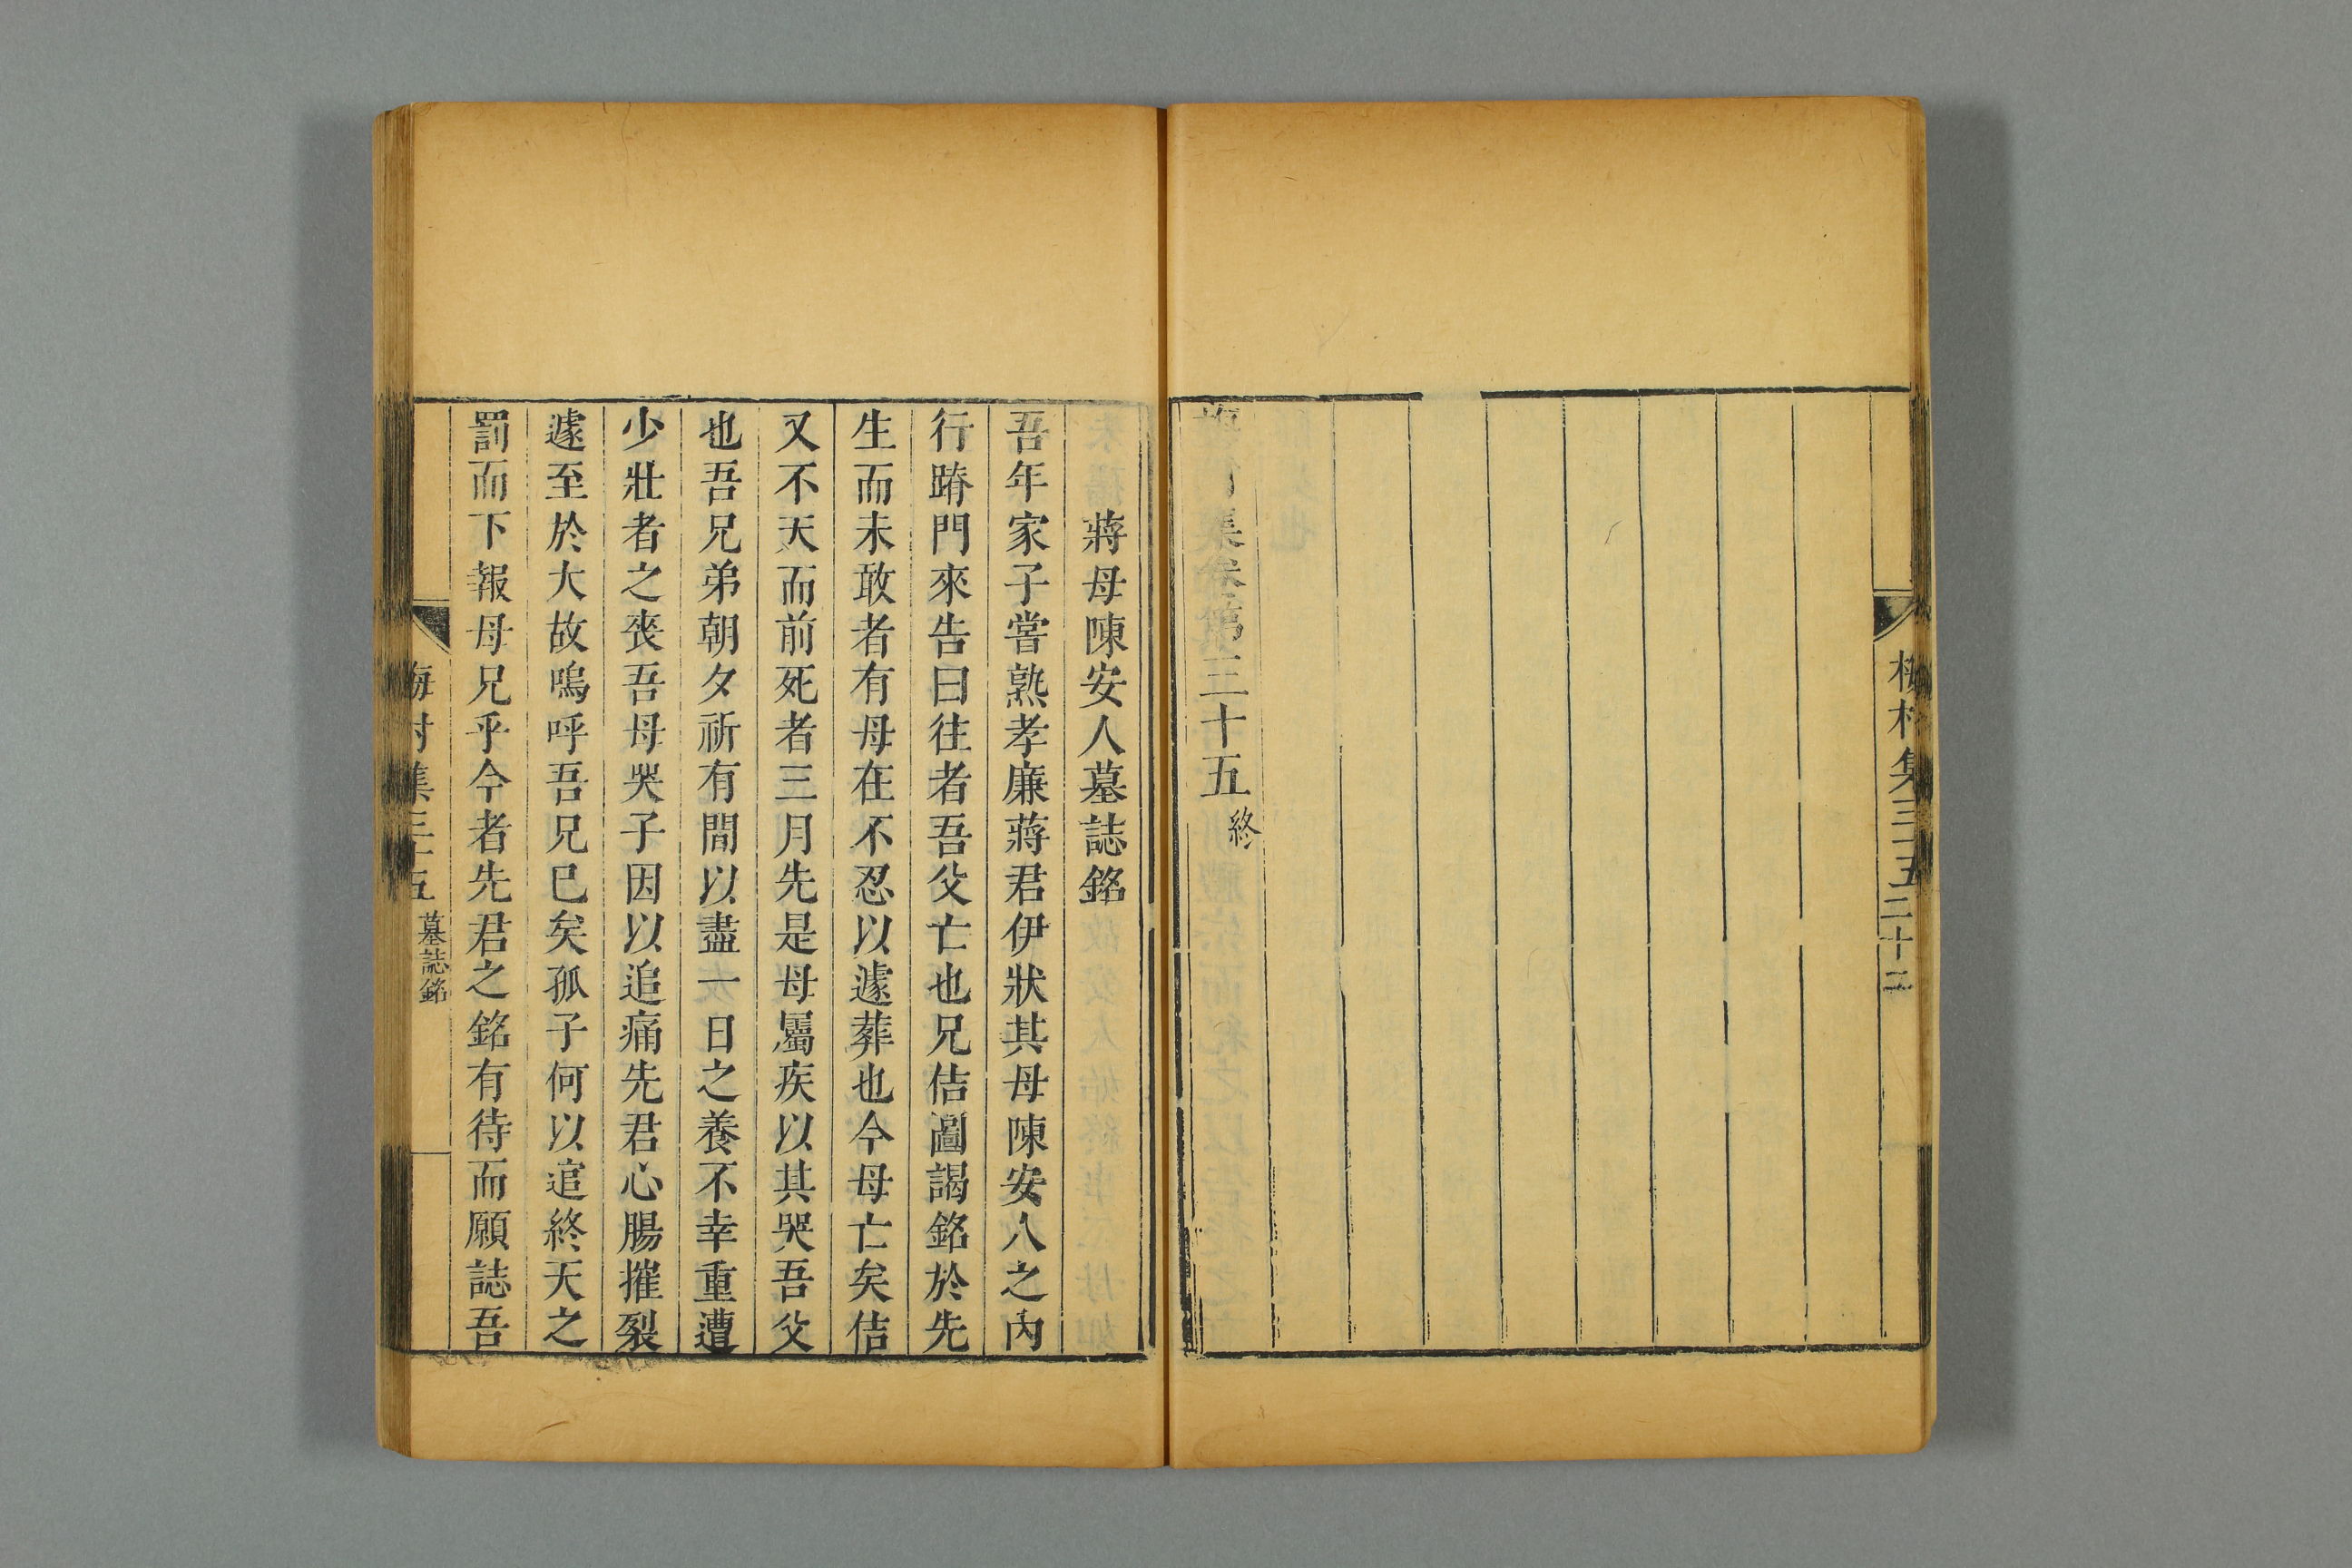 梅村集三十五 二十二
集卷第三十五 終
蔣母陳安人墓誌銘
吾年家子嘗熟孝廉蔣君伊狀其母陳安人之內
行踳門來告曰往者吾父亡也兄佶圖謁銘於先
生而未敢者有母在不忍以遽葬也今母亡矣佶
又不天而前死者三月先是母屬疾以其哭吾父
也吾兄弟朝夕祈有間以盡一日之養不幸重遭
少壯者之喪吾母哭子因以追痛先君心腸摧裂
遽至於大故嗚呼吾兄已矣孤子何以逭終天之
罰而下報母兄乎今者先君之銘有待而願誌吾
梅村集三十五 墓誌銘